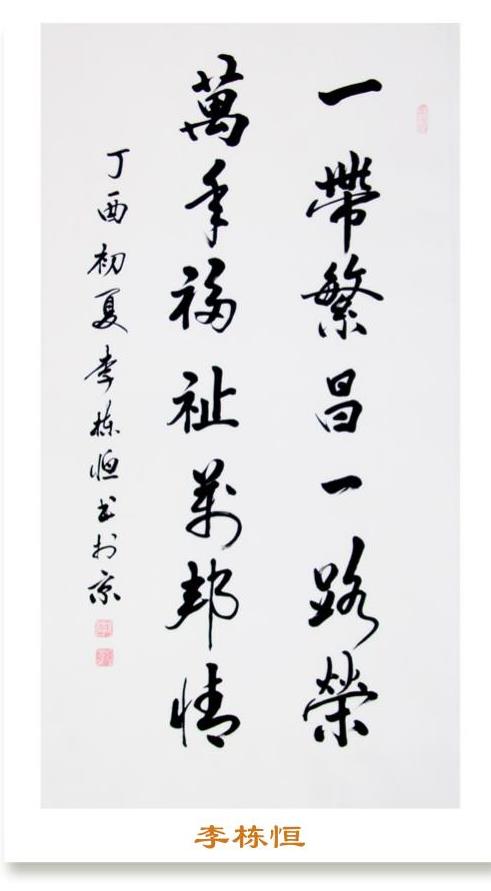 一帶繁昌一路榮
萬年福祉萬邦情
丁酉初夏李栋恒书於京
李栋恒